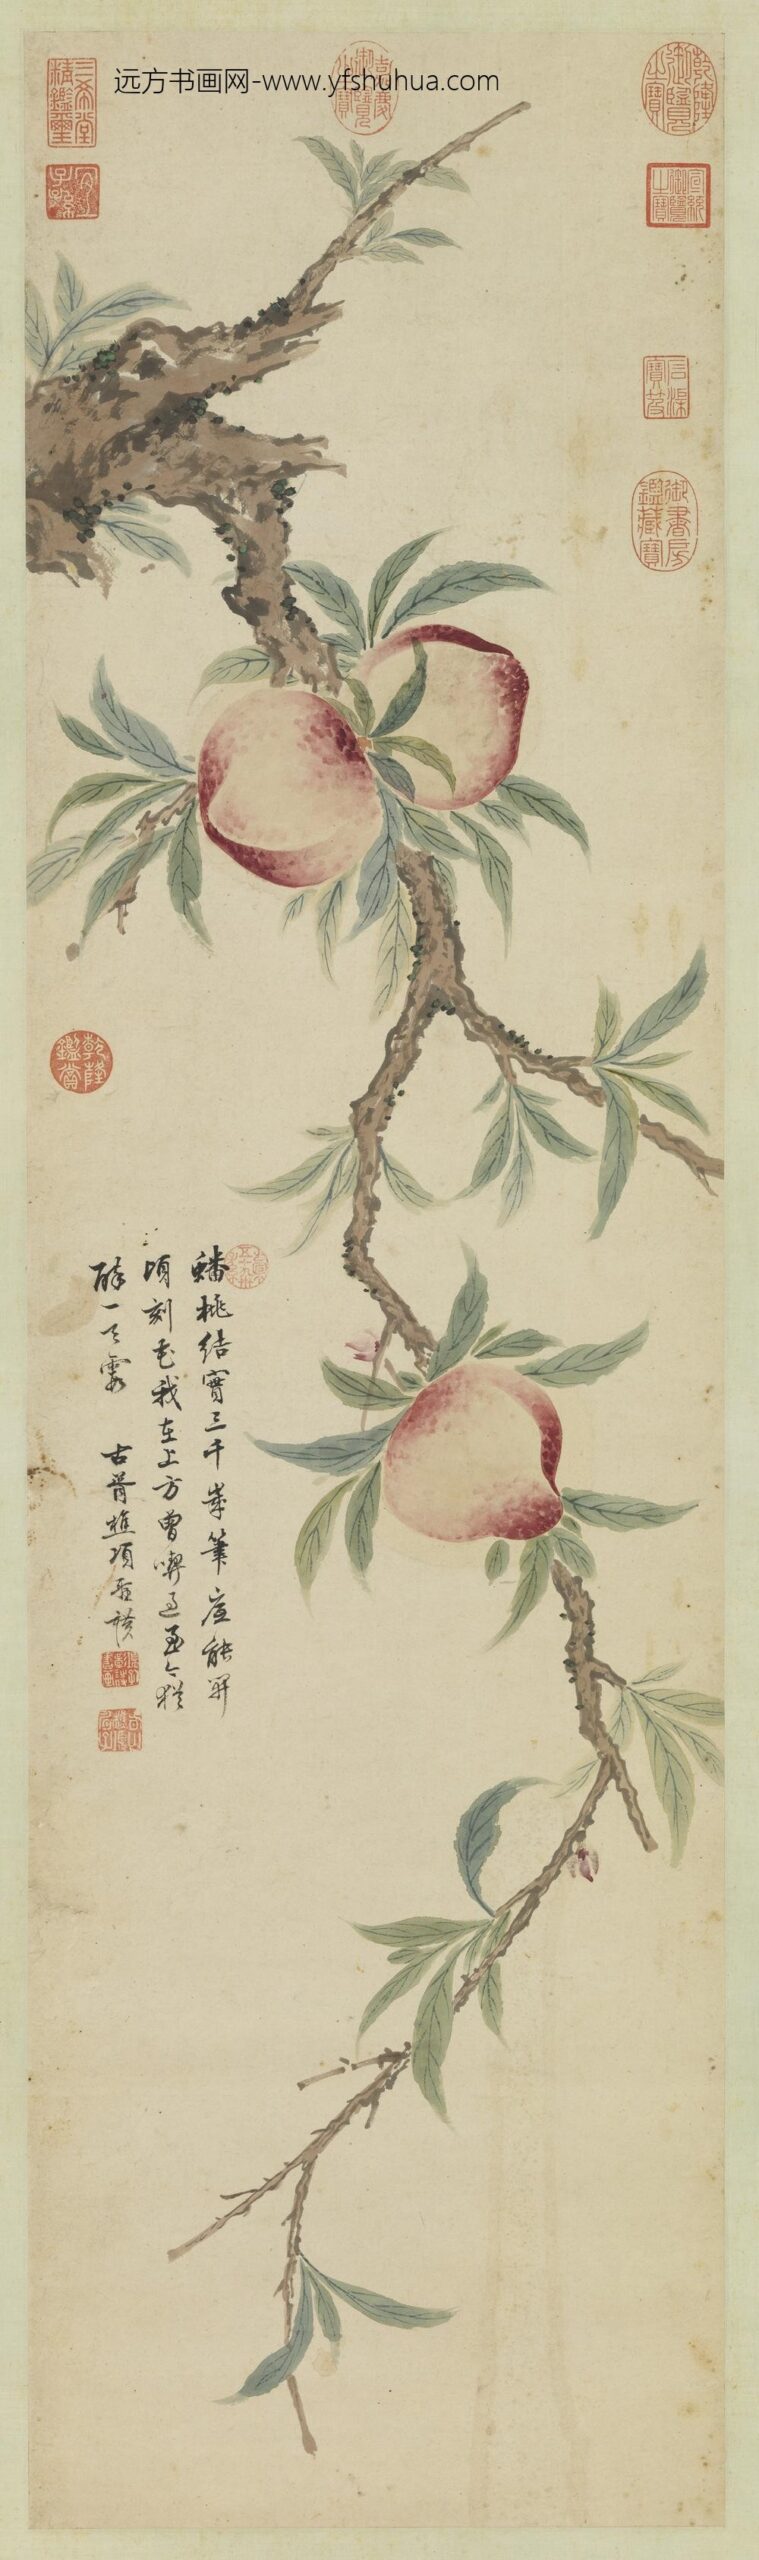 远方书画网-www.yfshuhua.com
乾隆御覽之寶
嘉慶御覽之寶
三希堂精鑑璽
宜子孫
宣統御覽之寶
石渠寶笈
御書房鑑藏寶
乾隆鑑賞
蟠桃結實三千歲筆底能開
頃刻花我在上方曾喫過至今猶
醉一天霞
古胥樵項聖謨